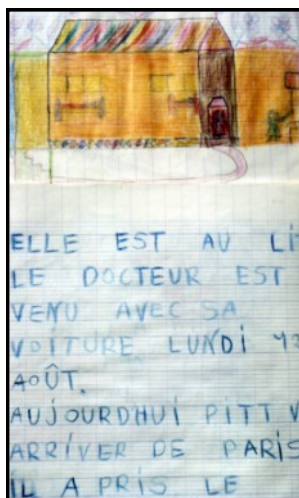 ELLE EST AU LIT
LE DOCTEUR EST
VENU AVEC SA
VOITURE LUNDI 13
AOÛT.
AUJOURDHUI PITT V
ARRIVER DE PARIS
IL A PRIS LE